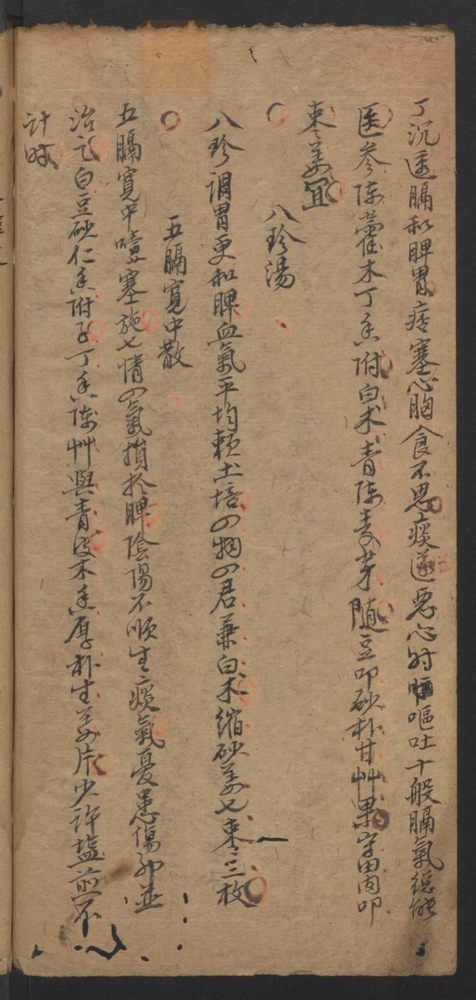 丁沉透膈和脾胃痞塞心胸食不思痰逆惡心時嘔吐十般膈氣總能
医參陈藿木丁香附白术青陈麦芽隨豆叩砂朴甘艸果字由肉叩
枣姜宜
八珍湯
八珍調胃更和脾血氣平均賴土培四物四君兼白术縮砂姜七枣三枚
五膈寬中散
五膈寬中噎塞施七情四氣損於脾陰陽不順生痰氣憂恚傷
治之白豆砂仁香附子丁香陈艸與青皮木香厚朴生姜片少許塩煎不
計時